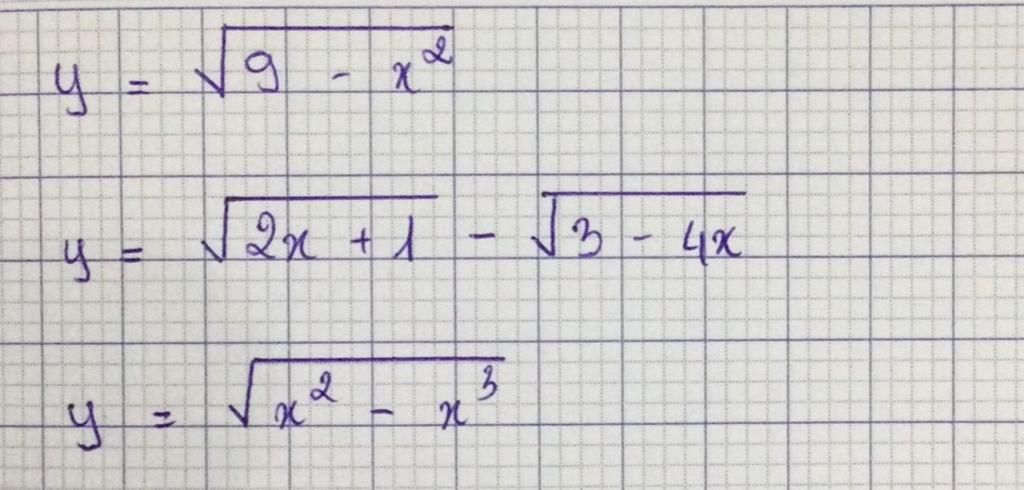 y = √(9 - x²)
y = √(2x + 1) - √(3 - 4x)
y = √(x² - x³)